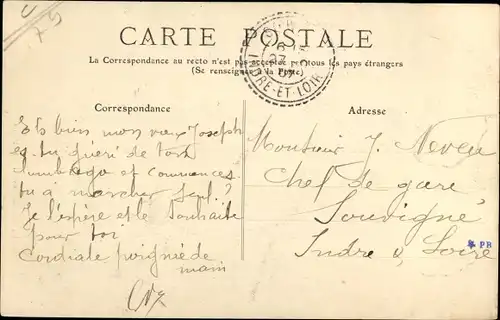 CARTE POSTALE
La Correspondance au recto n'est pas acceptée par tous les pays étrangers
(Se renseigner à la Poste)
INDRE-ET-LOIRE
Correspondance
Eh bien mon vieux Joseph
es tu guéri de ton
lumbago et commences
tu à marcher seul ?
Je l'espère et le souhaite
pour toi
Cordiale poignée de
main
Adresse
Monsieur J. Neveu
Chef de gare
Souvigné
Indre & Loire
PB